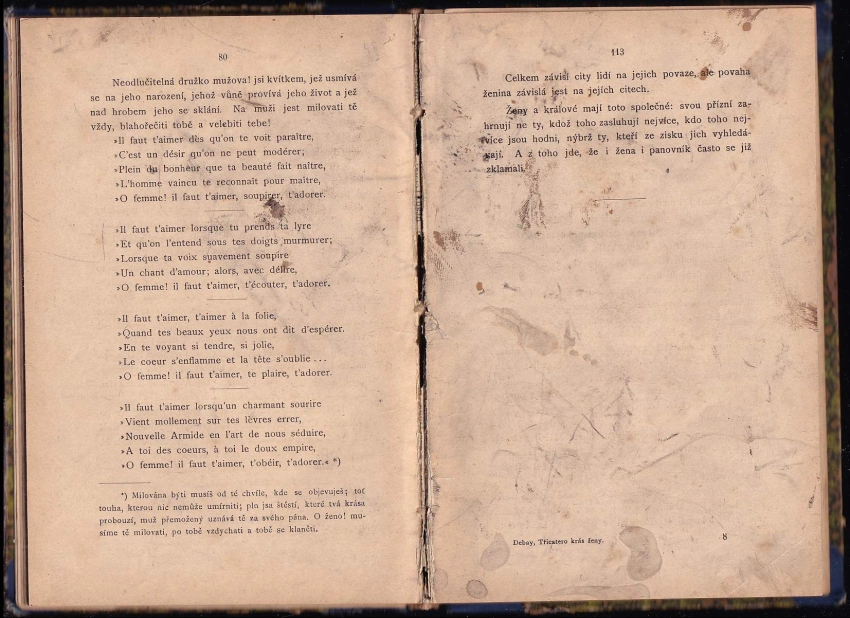 80
Neodlučitelná družko mužova! jsi kvítkem, jež usmívá
se na jeho narození, jehož vůně provívá jeho život a jež
nad hrobem jeho se sklání. Na muži jest milovati tě
vždy, blahořečiti tobě a velebiti tebe!
»Il faut t'aimer dès qu'on te voit paraître,
»C'est un désir qu'on ne peut modérer;
»Plein du bonheur que ta beauté fait naître,
»L'homme vaincu te reconnaît pour maître,
»O femme! il faut t'aimer, soupirer, t'adorer.
»Il faut t'aimer lorsque tu prends ta lyre
»Et qu'on l'entend sous tes doigts murmurer;
»Lorsque ta voix suavement soupire
»Un chant d'amour; alors, avec délire,
»O femme! il faut t'aimer, t'écouter, t'adorer.
»Il faut t'aimer, t'aimer à la folie,
»Quand tes beaux yeux nous ont dit d'espérer.
»En te voyant si tendre, si jolie,
»Le coeur s'enflamme et la tête s'oublie ...
»O femme! il faut t'aimer, te plaire, t'adorer.
»Il faut t'aimer lorsqu'un charmant sourire
»Vient mollement sur tes lèvres errer,
»Nouvelle Armide en l'art de nous séduire,
»A toi des coeurs, à toi le doux empire,
»O femme! il faut t'aimer, t'obéir, t'adorer.« *)
*) Milována býti musíš od té chvíle, kde se objevuješ; toť
touha, kterou nic nemůže umírniti; pln jsa štěstí, které tvá krása
probouzí, muž přemožený uznává tě za svého pána. O ženo! mu-
síme tě milovati, po tobě vzdychati a tobě se klaněti.
113
Celkem závisí city lidí na jejich povaze, ale povaha
ženina závislá jest na jejích citech.
Ženy a králové mají toto společné: svou přízní za-
hrnují ne ty, kdož toho zasluhují nejvíce, kdo toho nej-
více jsou hodni, nýbrž ty, kteří ze zisku jich vyhledá-
vají. A z toho jde, že i žena i panovník často se již
zklamali.
Debay, Třicatero krás ženy.
8